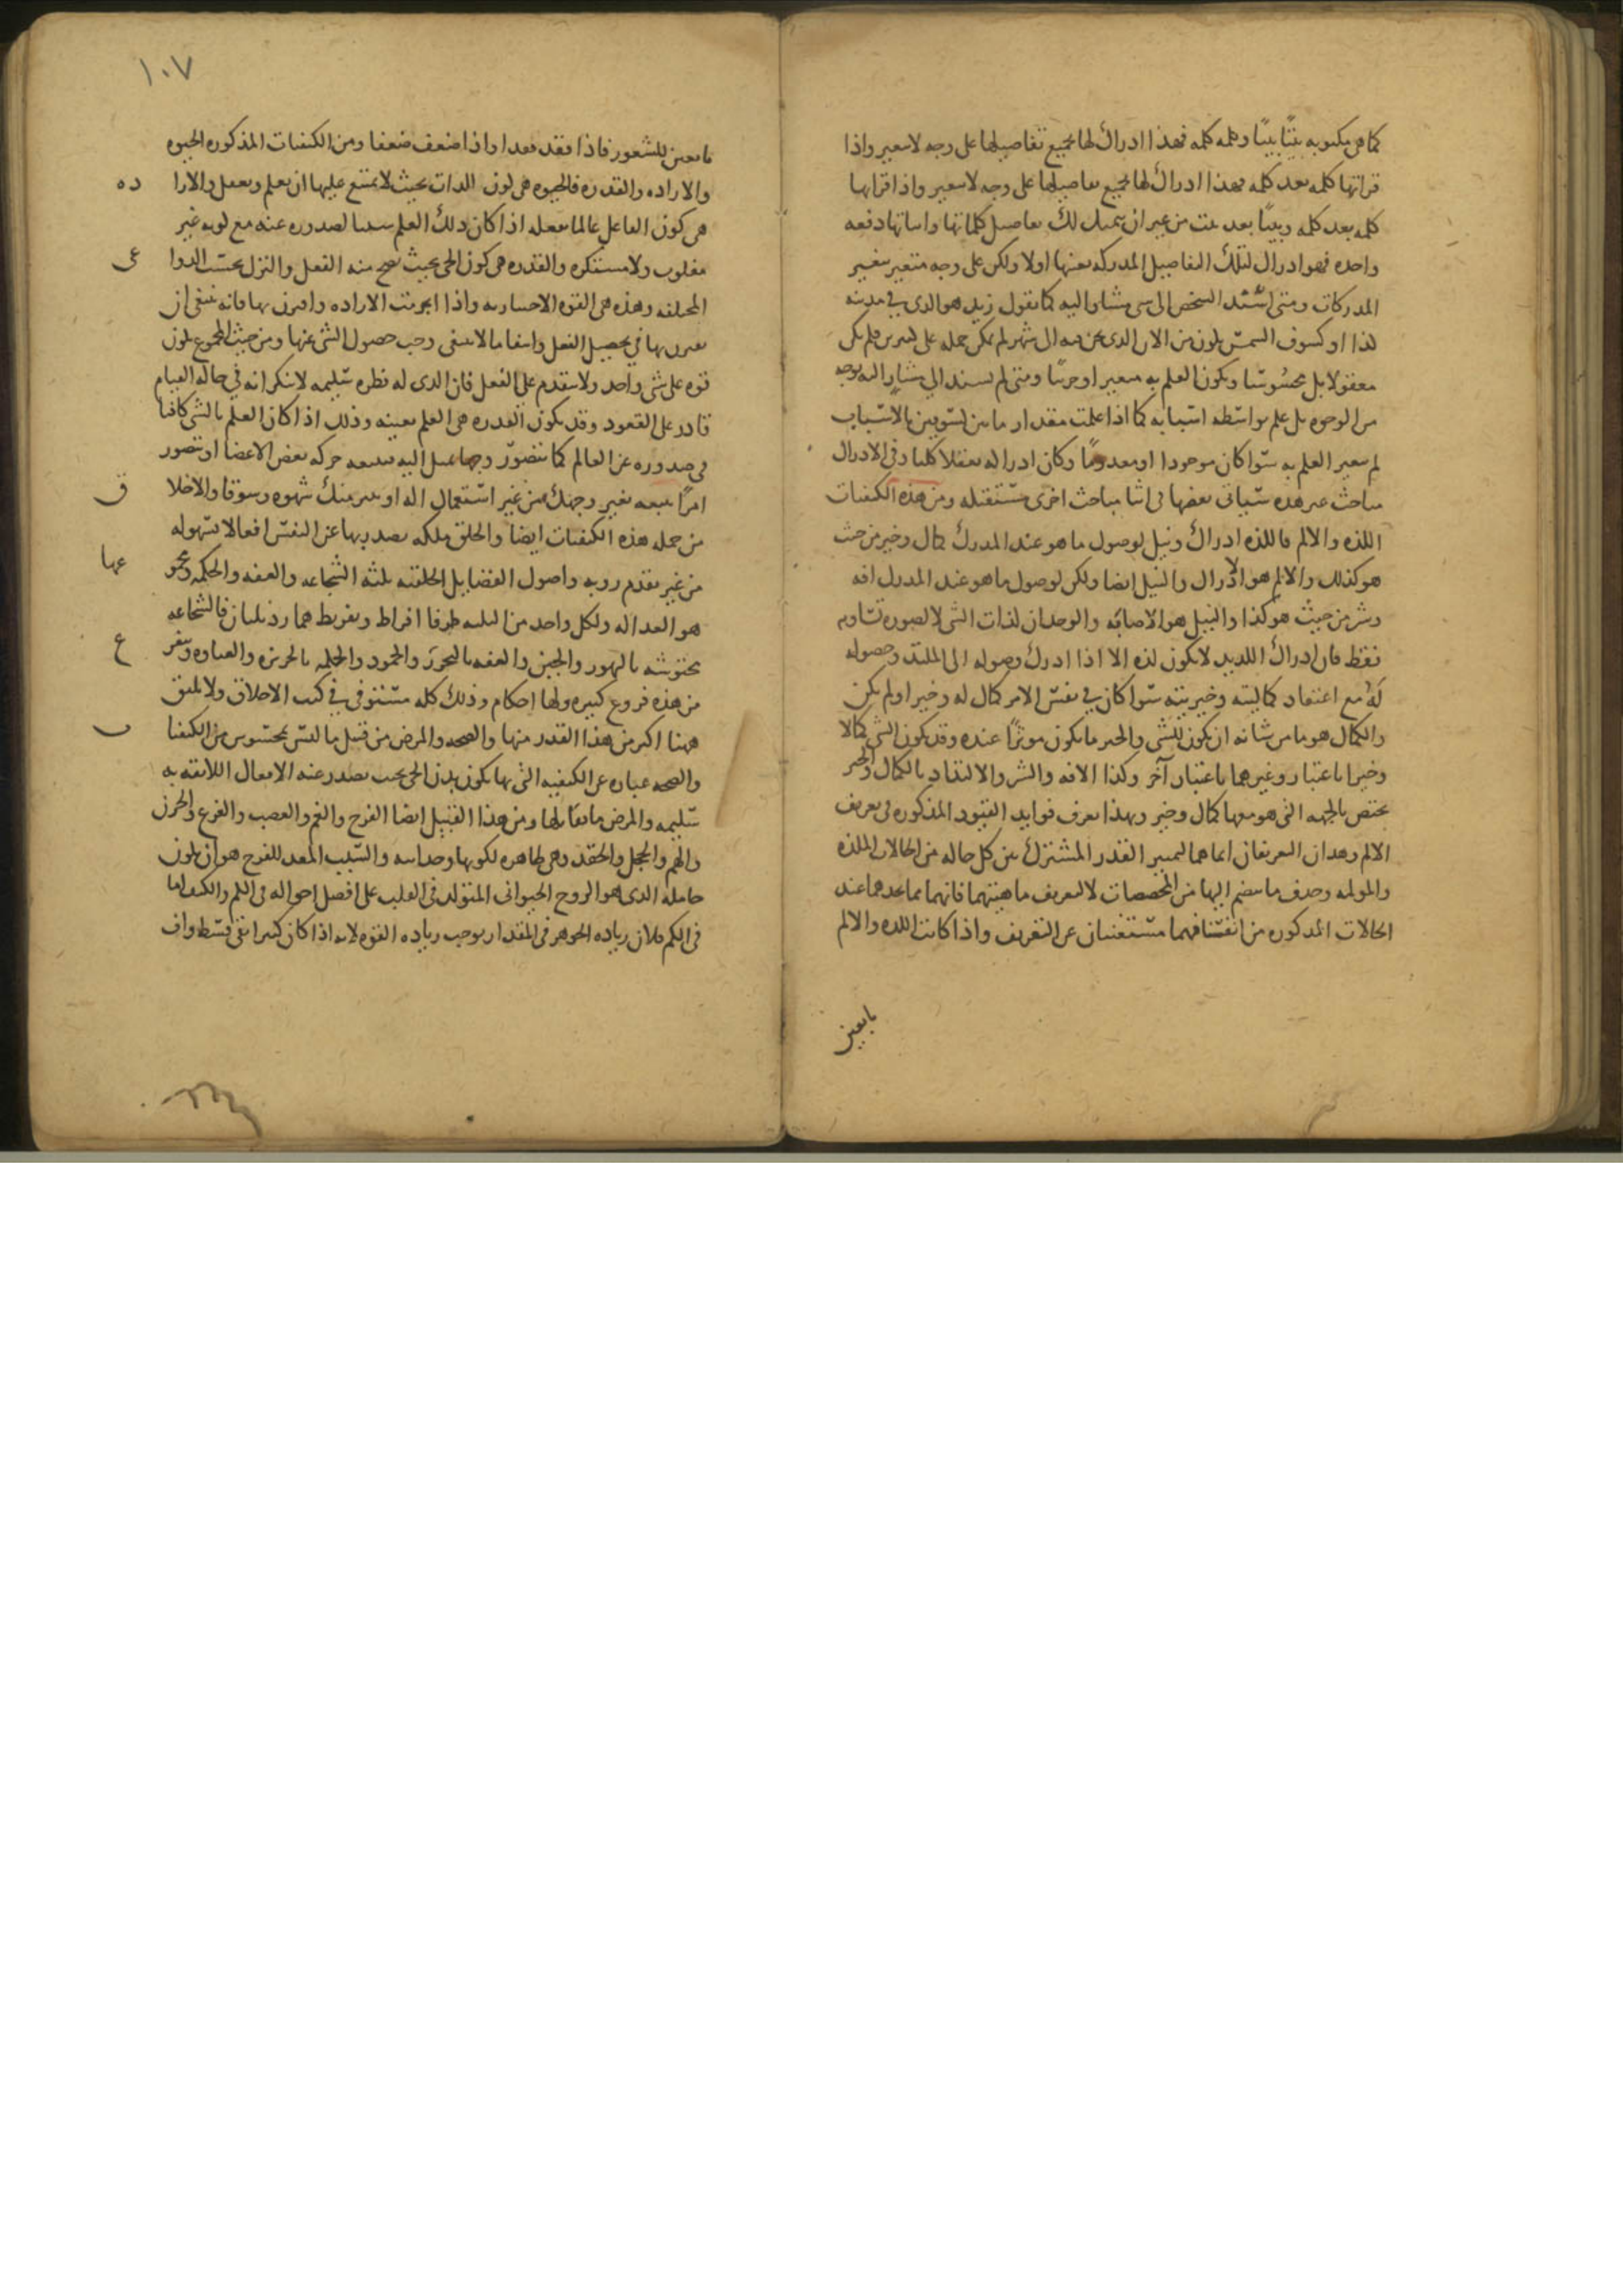 كما هى مكتوبه بيتًا بيتًا وكلمه كلمه فهذا ادراك لها بجميع تفاصيلها على وجه لا يتغير واذا
قراتها كلمه بعد كلمه فهذا ادراك لها بجميع تفاصيلها على وجه لا يتغير واذا قراتها
كلمه بعد كلمه وبيتًا بعد بيت من غير ان يتمثل لك تفاصيل كلماتها وابياتها دفعه
واحده فهو ادراك لتلك التفاصيل المدركه بعينها اولا ولكن على وجه متغير بتغير
المدركات ومتى اسند الشخص الى شى مشار اليه كما تقول زيد هو الذى فى مدينه
كذا او كسوف الشمس يكون من الان الذى نحن فيه الى شهر لم يكن حمله على كثيرين فلم يكن
معقولا بل محسوسًا ويكون العلم به متغيرا وجزئيا ومتى لم يسند الى مشار اليه بوجه
من الوجوه بل علم بواسطه اسبابه كما اذا علمت مقدار ما بين كسوفين بالاسباب
لم يتغير العلم به سوا كان موجودا او معدومًا وكان ادراكه تعقلا كليا وفى الادراك
مباحث غير هذه سياتى بعضها فى اثنا مباحث اخرى مستقبله ومن هذه الكيفيات
اللذه والالم فاللذه ادراك ونيل لوصول ما هو عند المدرك كمال وخير من حيث
هو كذلك والالم هو الادراك والنيل ايضا ولكن لوصول ما هو عند المدرك افه
وشر من حيث هو كذا والنيل هو الاصابه والوجدان لذات الشى لا لصوره تساويه
فقط فان ادراك اللذيذ لا يكون لذه الا اذا ادرك وصوله الى الملتذ وحصوله
له مع اعتقاد كماليته وخيريته سوا كان فى نفس الامر كمال له وخير او لم يكن
والكمال هو ما من شانه ان يكون للشى والخير ما يكون موثرًا عنده وقد يكون الشى كمالا
وخيرا باعتبار وغيرهما باعتبار آخر وكذا الافه والشر والالتذاذ بالكمال والخير
يختص بالجهه التى هو معها كمال وخير وبهذا يعرف فوايد القيود المذكوره فى تعريف
الالم وهذان التعريفان انما هما لتمييز القدر المشترك بين كل حاله من الحالات الملذه
والمولمه وحذف ما ينضم اليها من المخصصات لا لتعريف ماهيتهما فانهما مما نجدهما عند
الحالات المذكوره من انفسنا فهما مستغنيان عن التعريف واذا كانت اللذه والالم
ما يعين
١٠٧
ما يعين للشعور فاذا فقد فقدا واذا ضعف ضعفا ومن الكيفيات المذكوره الحيوه
والاراده والقدره فالحيوه هى كون الذات بحيث لا يمتنع عليها ان يعلم ويفعل والاراده
هى كون الفاعل عالما بفعله اذا كان ذلك العلم سببا لصدوره عنه مع كونه غير
مغلوب ولا مستكره والقدره هى كون الحى بحيث يصح منه الفعل والترك بحسب الدواعى
المختلفه وهذه هى القوه الاختياريه واذا انجزمت الاراده واقترن بها فانه ينبغى ان
يقترن بها فى تحصيل الفعل وانتفا ما لا ينبغى وجب حصول الشى عنها ومن حيث المجموع يكون
قوه على شى واحد ولا يتقدم على الفعل فان الذى له فطره سليمه لا ينكر انه فى حاله القيام
قادر على القعود وقد يكون القدره هى العلم بعينه وذلك اذا كان العلم بالشى كافيا
فى صدوره عن العالم كما تتصور وجها تميل اليه فيتبعه حركه بعض الاعضا او تتصور
امرًا فيتبعه تغير وجهك من غير استعمال اله او تغير منك شهوه وشوقا والاخلاق
من جمله هذه الكيفيات ايضا والخلق ملكه يصدر بها عن النفس افعال بسهوله
من غير تقدم رويه واصول الفضايل الخلقيه ثلثه الشجاعه والعفه والحكمه ومجموعها
هو العداله ولكل واحد من الثلثه طرفا افراط وتفريط هما رذيلتان فالشجاعه
محتوشه بالتهور والجبن والعفه بالفجور والخمود والحكمه بالجربزه والغباوه ويتفرع
من هذه فروع كثيره ولها احكام وذلك كله مستوفى فى كتب الاخلاق ولا يليق
ههنا اكثر من هذا القدر منها والصحه والمرض من قبيل ما ليس بمحسوس من الكيفيات
والصحه عباره عن الكيفيه التى بها يكون بدن الحى بحيث يصدر عنه الافعال اللايقه به
سليمه والمرض ما يقابلها ومن هذا القبيل ايضا الفرح والغم والغضب والفزع والحزن
والهم والخجل والحقد وهى ظاهره لكونها وجدانيه والسبب المعد للفرح هو ان يكون
حامله الذى هو الروح الحيوانى المتولد فى القلب على افضل احواله فى الكم والكيف اما
فى الكم فلان زياده الجوهر فى المقدار يوجب زياده القوه لانه اذا كان كثيرا بقى قسط واف